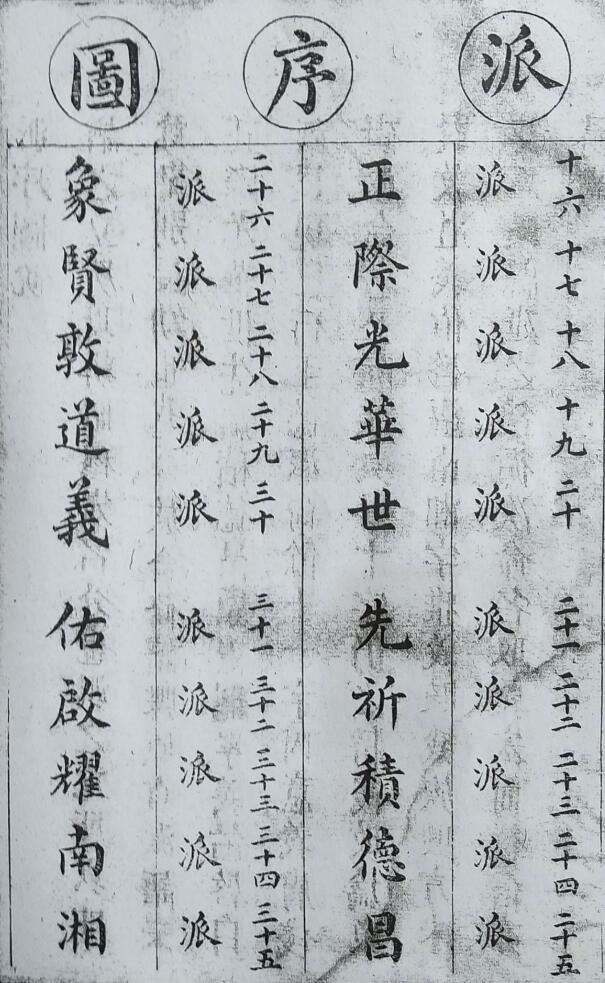 派序圖
十六 十七 十八 十九 二十 二十一 二十二 二十三 二十四 二十五
派 派 派 派 派 派 派 派 派 派
正際光華世 先祈積德昌
二十六 二十七 二十八 二十九 三十 三十一 三十二 三十三 三十四 三十五
派 派 派 派 派 派 派 派 派 派
象賢敦道義 佑啟耀南湘